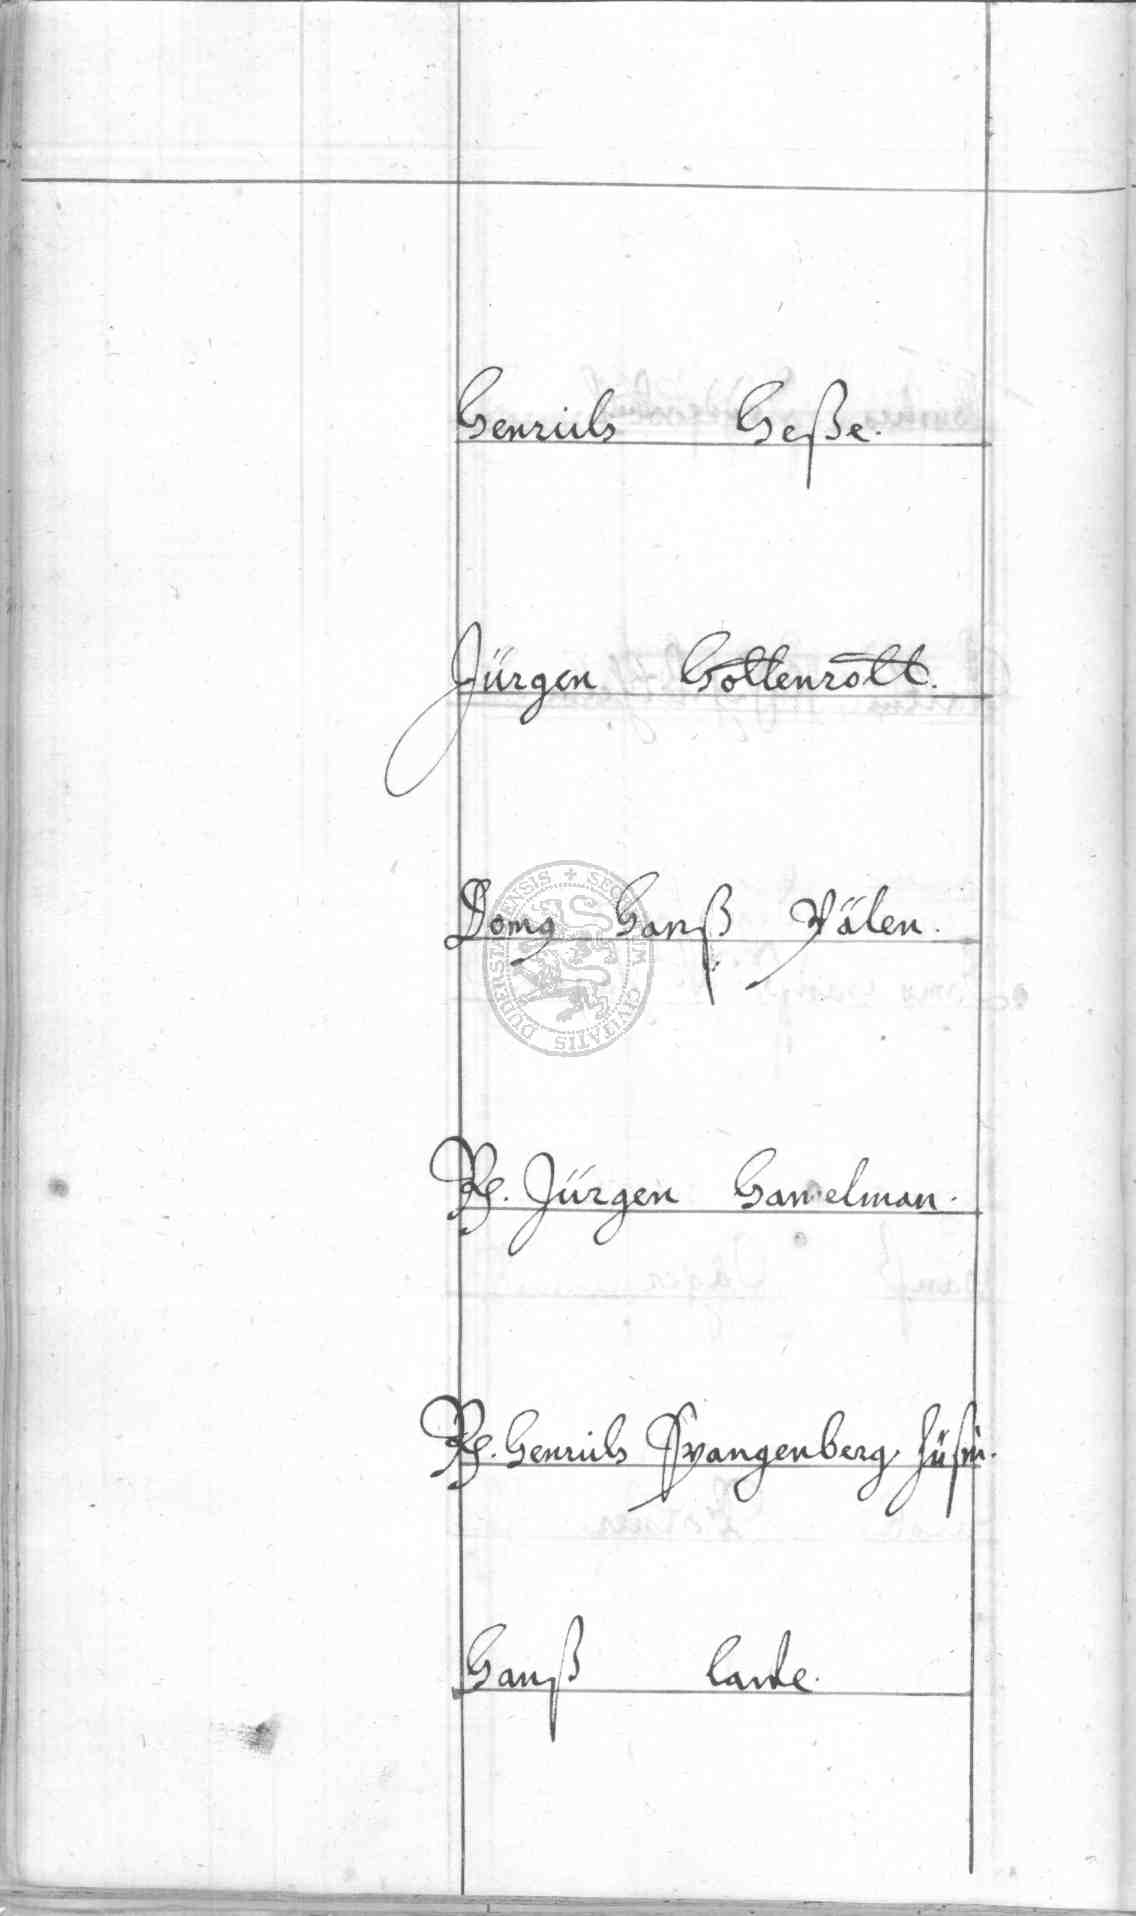 Henrich Heße.
Jürgen Hottenrott.
Hanß Välen.
Jürgen Hamelman.
Henrich Spangenberg
Hanß
SIGILLUM CIVITATIS DUDERSTADENSIS